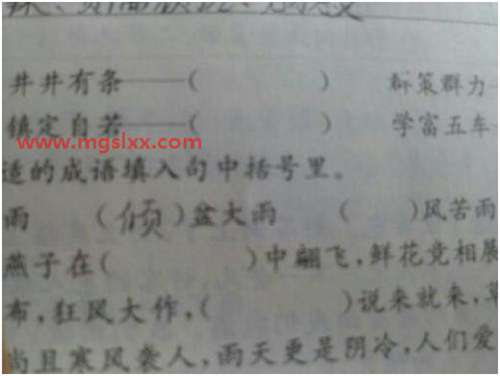 井井有条——(　　　) 群策群力—
镇定自若——(　　　) 学富五车
www.mgslxx.com
适的成语填入句中括号里。
雨 (倾)盆大雨 (　　)风苦雨
燕子在(　　　)中翩飞,鲜花竞相展
布,狂风大作,(　　　)说来就来,
尚且寒风袭人,雨天更是阴冷,人们爱